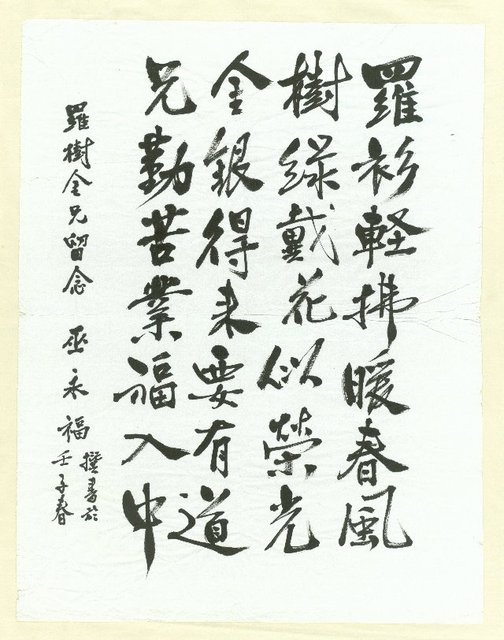 羅衫軽拂暖春風
樹緑戴花似榮光
金銀得来要有道
兄勤苦業福入中
羅樹金兄留念 巫永福
撰書於
壬子春